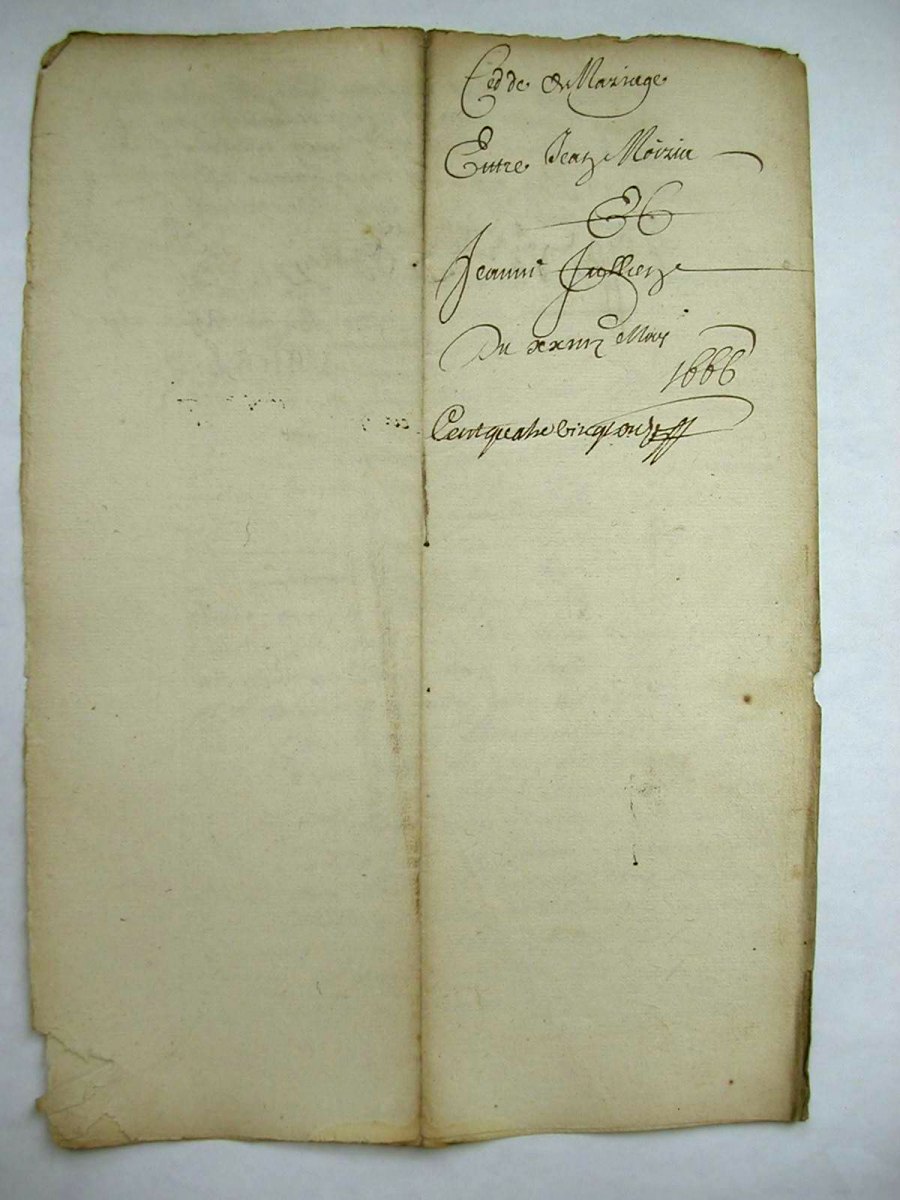 Ced de Mariage
Entre Jean Moizin
Et
Jeanne Jullien
Du xxiiii May
1666
Cent quatre vingt onze